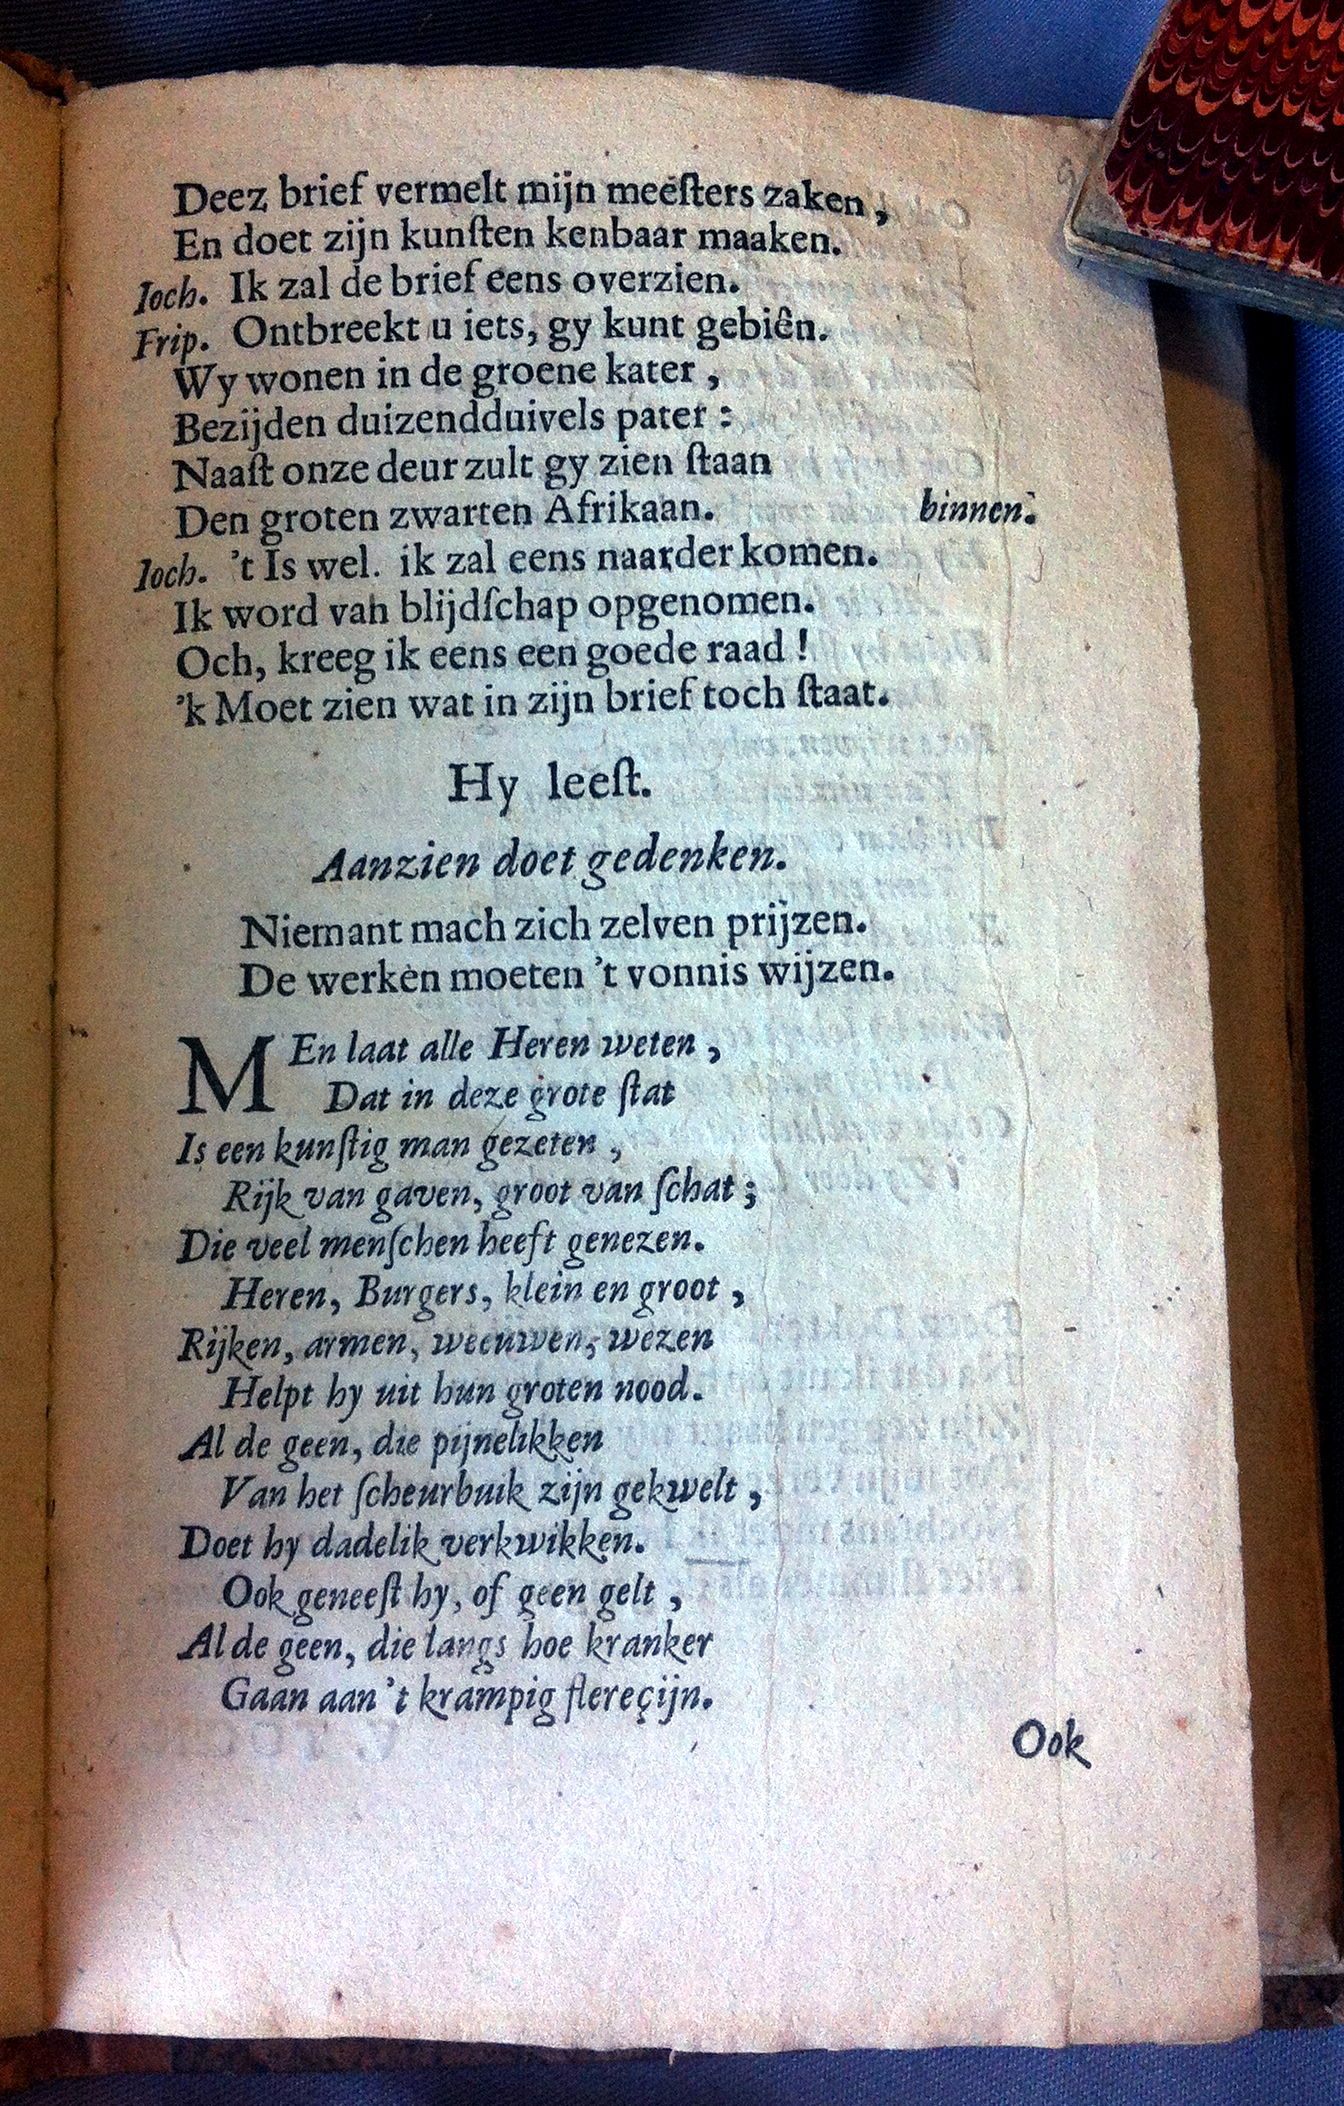 Deez brief vermelt mijn meeſters zaken,
En doet zijn kunſten kenbaar maaken.
Joch. Ik zal de brief eens overzien.
Frip. Ontbreekt u iets, gy kunt gebiên.
Wy wonen in de groene kater,
Bezijden duizendduivels pater:
Naaſt onze deur zult gy zien ſtaan
Den groten zwarten Afrikaan. binnen.
Joch. 't Is wel. ik zal eens naarder komen.
Ik word van blijdſchap opgenomen.
Och, kreeg ik eens een goede raad!
'k Moet zien wat in zijn brief toch ſtaat.
Hy leeſt.
Aanzien doet gedenken.
Niemant mach zich zelven prijzen.
De werken moeten 't vonnis wijzen.
MEn laat alle Heren weten,
Dat in deze grote ſtat
Is een kunſtig man gezeten,
Rijk van gaven, groot van ſchat;
Die veel menſchen heeft genezen.
Heren, Burgers, klein en groot,
Rijken, armen, weeuwen, wezen
Helpt hy uit hun groten nood.
Al de geen, die pijnelikken
Van het ſcheurbuik zijn gekwelt,
Doet hy dadelik verkwikken.
Ook geneeſt hy, of geen gelt,
Al de geen, die langs hoe kranker
Gaan aan 't krampig flereçijn.
Ook